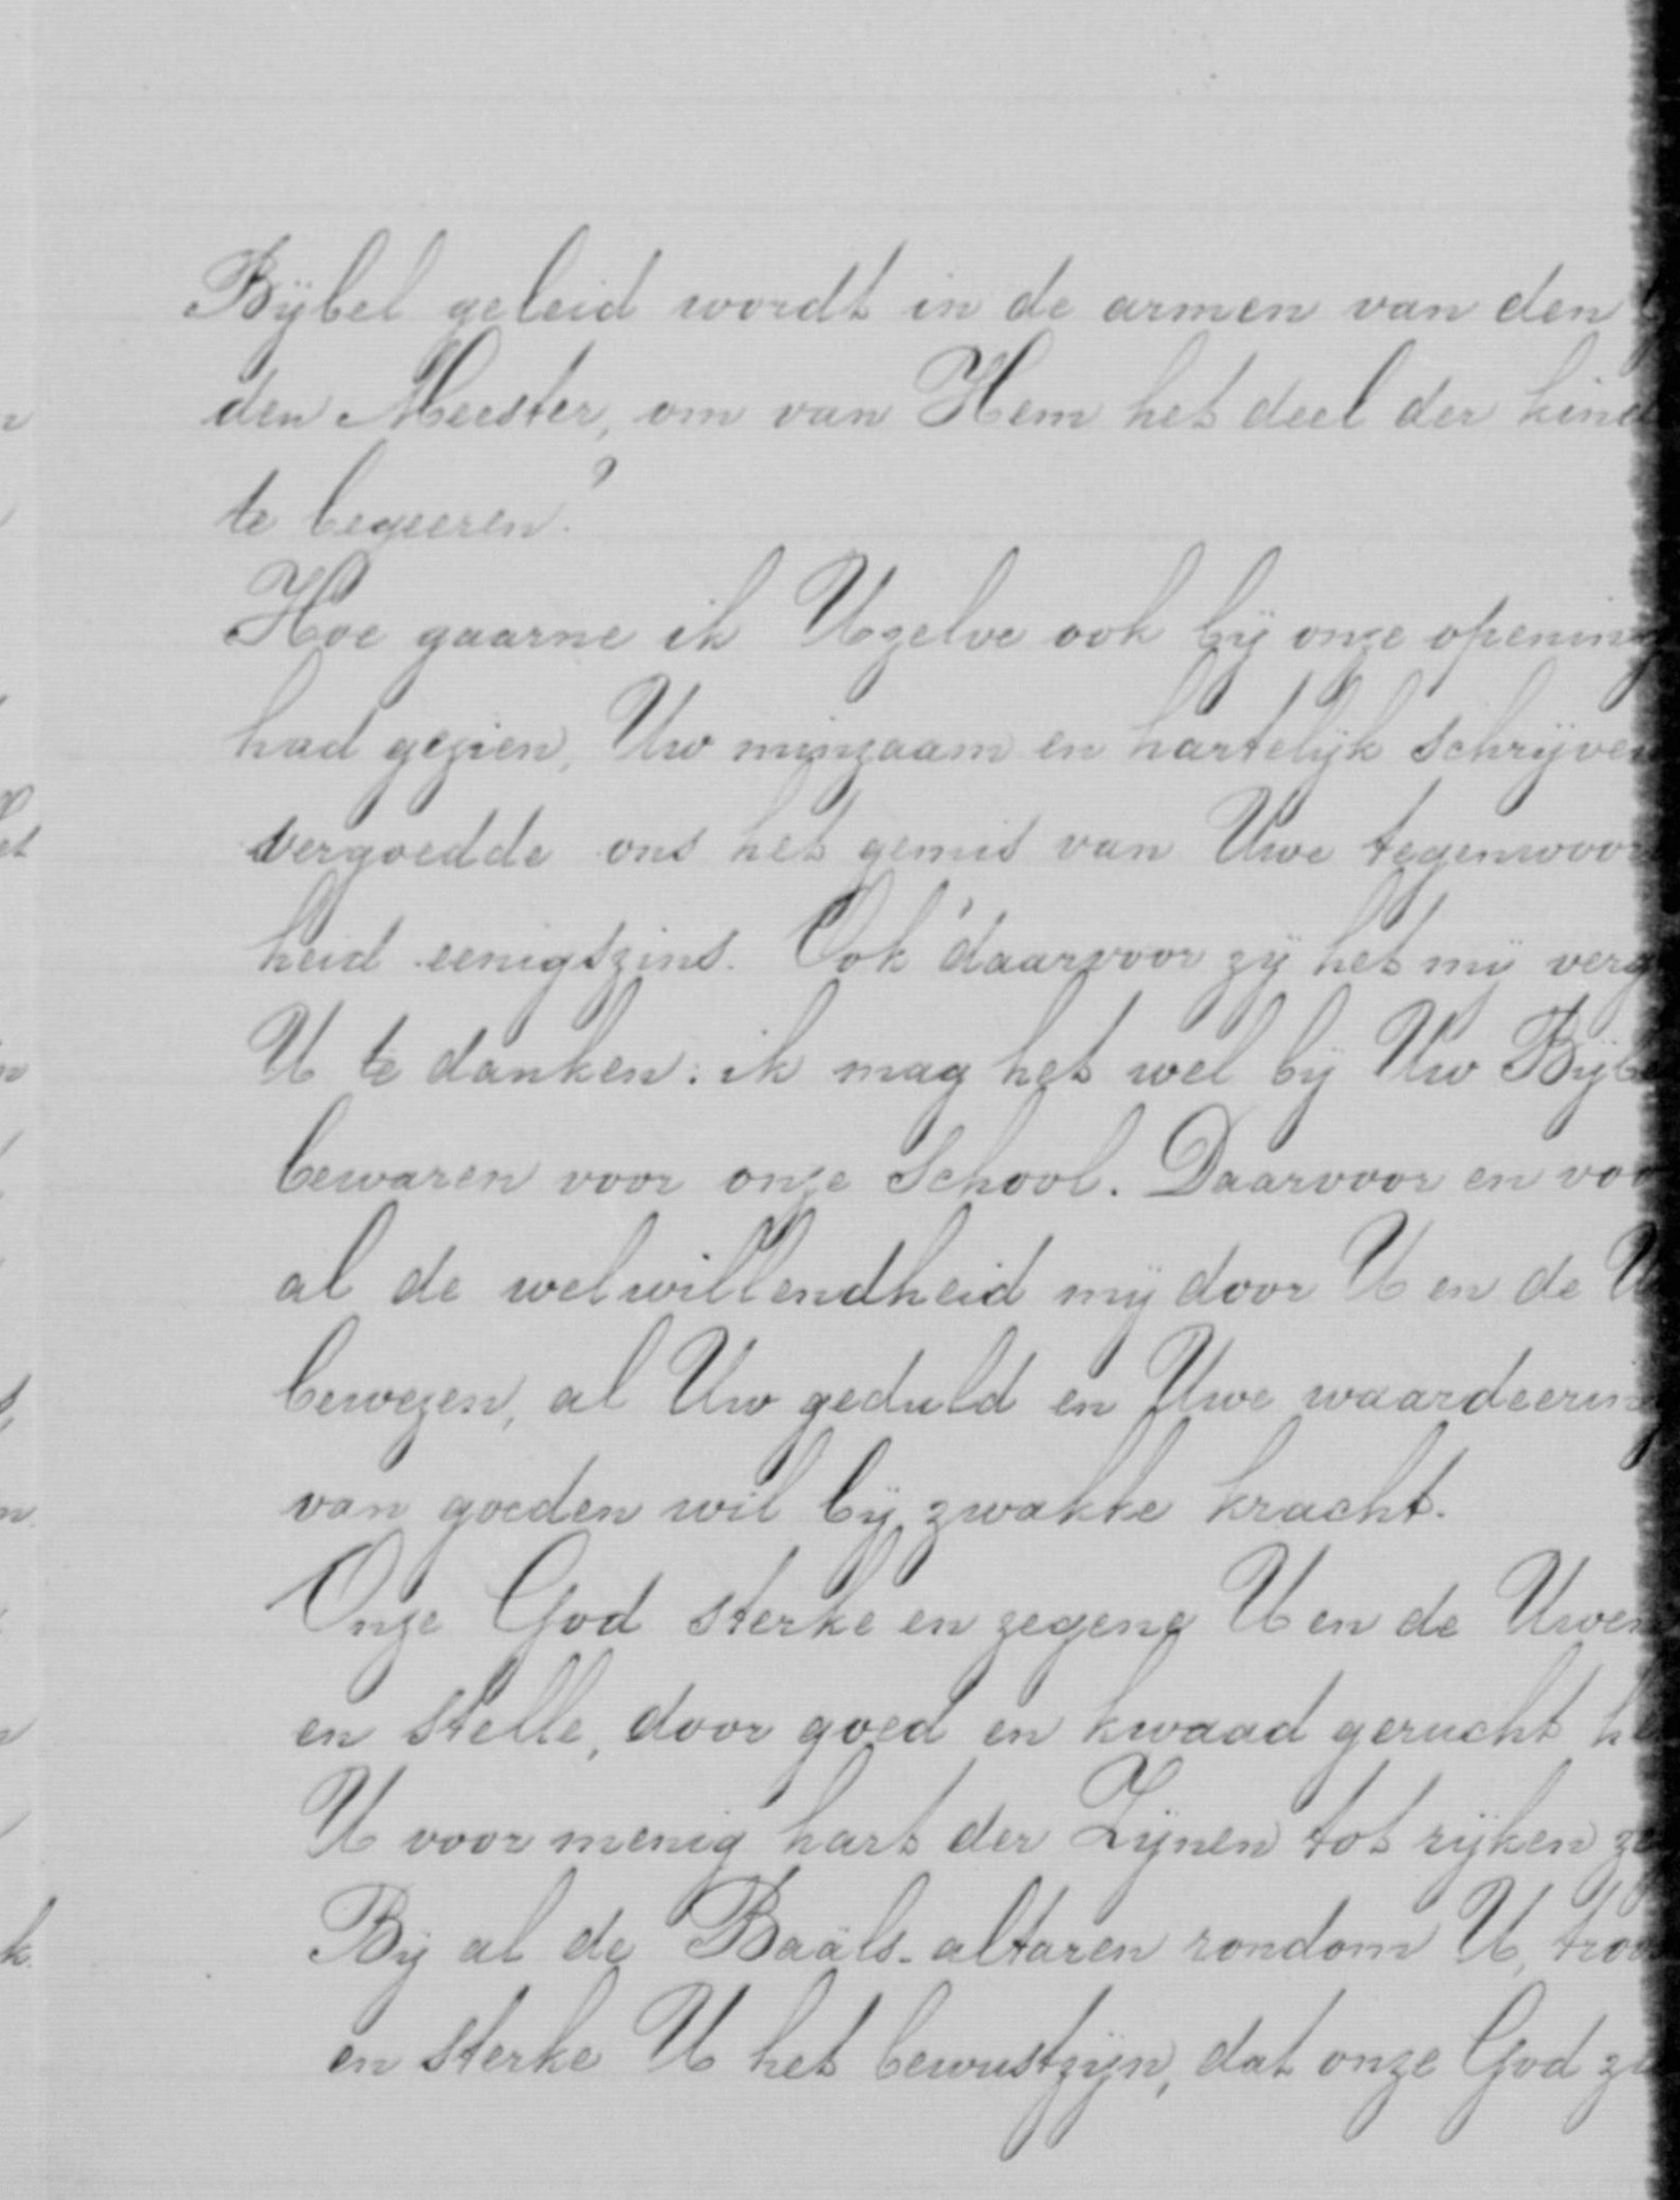 Bijbel geleid wordt in de armen van den
den Meester, om van Hem het deel der kind
te begeeren?
Hoe gaarne ik Uzelve ook bij onze opening
had gezien, Uw minzaam en hartelijk schrijven
vergoedde ons het gemis van Uwe tegenwoord
heid eenigszins. Ook daarvoor zij het mij verg
U te danken: ik mag het wel bij Uw Bijbel
bewaren voor onze School. Daarvoor en voor
al de welwillendheid mij door U en de U
bewezen, al Uw geduld en Uwe waardeering
van goeden wil bij zwakke kracht.
Onze God sterke en zegene U en de Uwen
en stelle, door goed en kwaad gerucht h
U voor menig hart der Zijnen tot rijken ze
Bij al de Baäls-altaren rondom U, troo
en sterke U het bewustzijn, dat onze God z